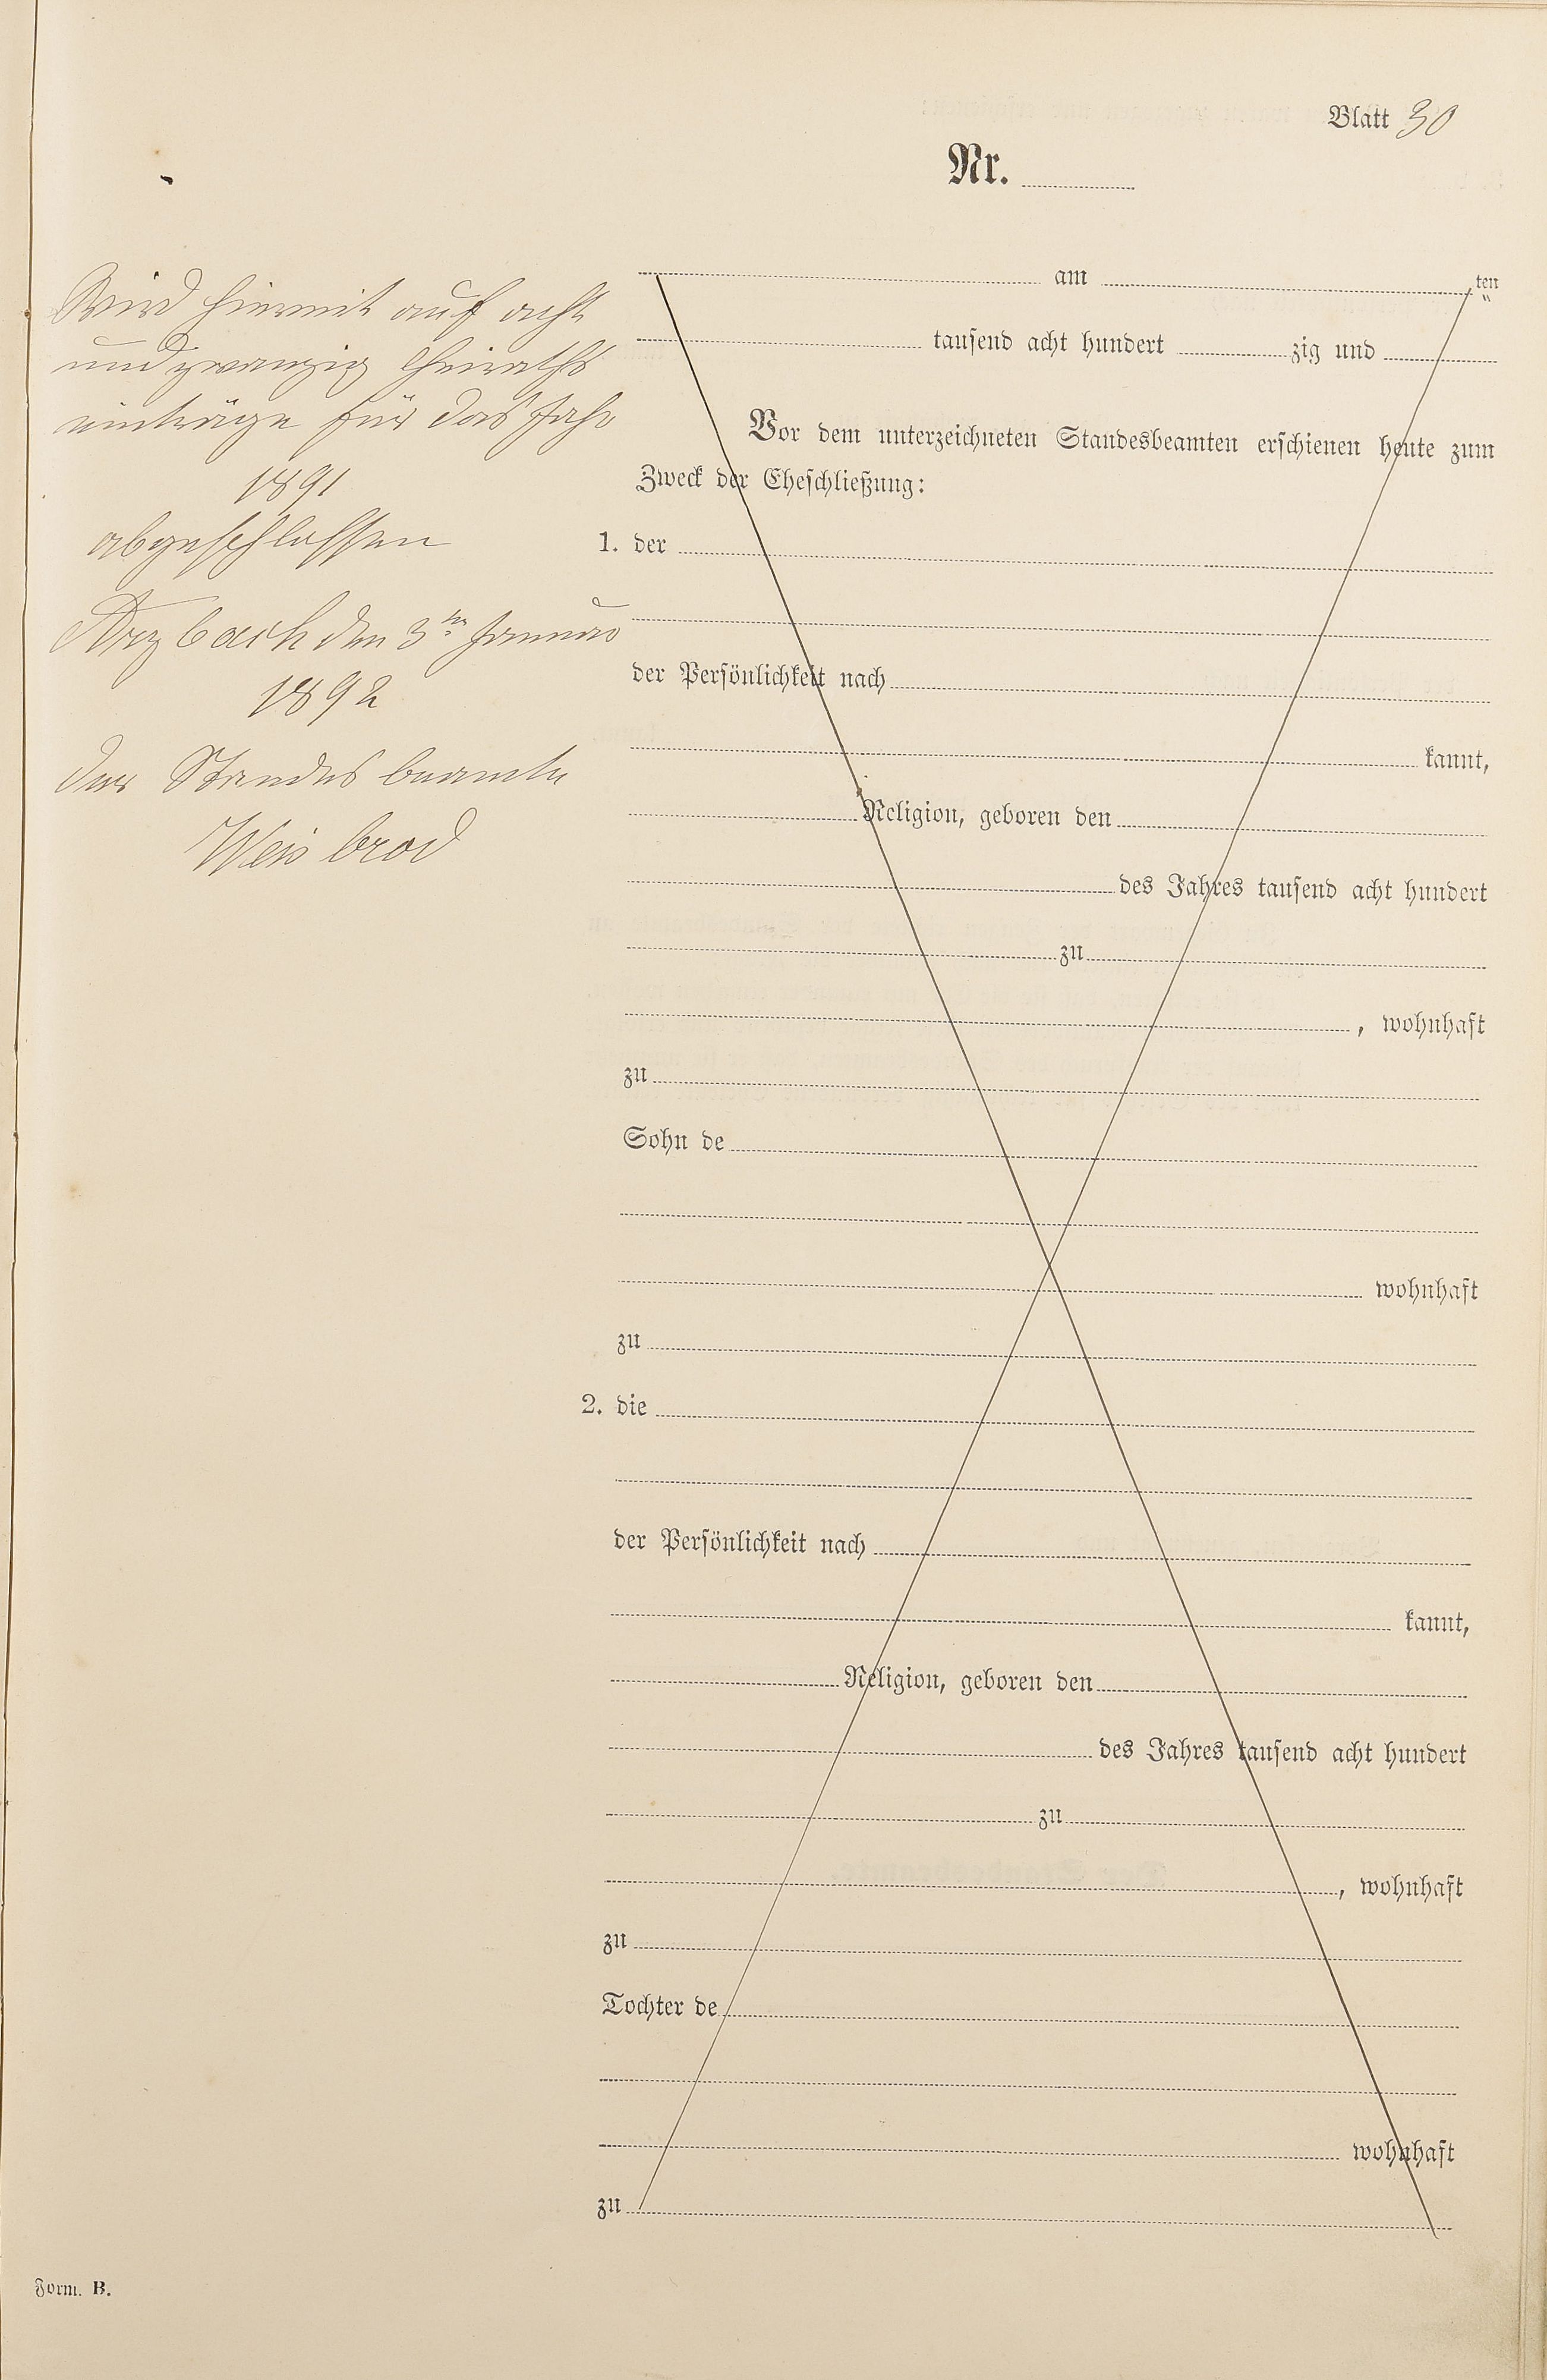 Blatt 30
Nr.
Wird hiermit auf acht
und zwanzig Heiraths
einträge für das Jahr
1891
abgeschlossen
Arzbach den 3ten Januar
1892
Der Standesbeamte
Weisbrod
am ten
tausend acht hundert zig und
Vor dem unterzeichneten Standesbeamten erschienen heute zum
Zweck der Eheschließung:
1. der
der Persönlichkeit nach
kannt,
Religion, geboren den
des Jahres tausend acht hundert
zu
, wohnhaft
zu
Sohn de
wohnhaft
zu
2. die
der Persönlichkeit nach
kannt,
Religion, geboren den
des Jahres tausend acht hundert
zu
, wohnhaft
zu
Tochter de
wohnhaft
zu
Form. B.